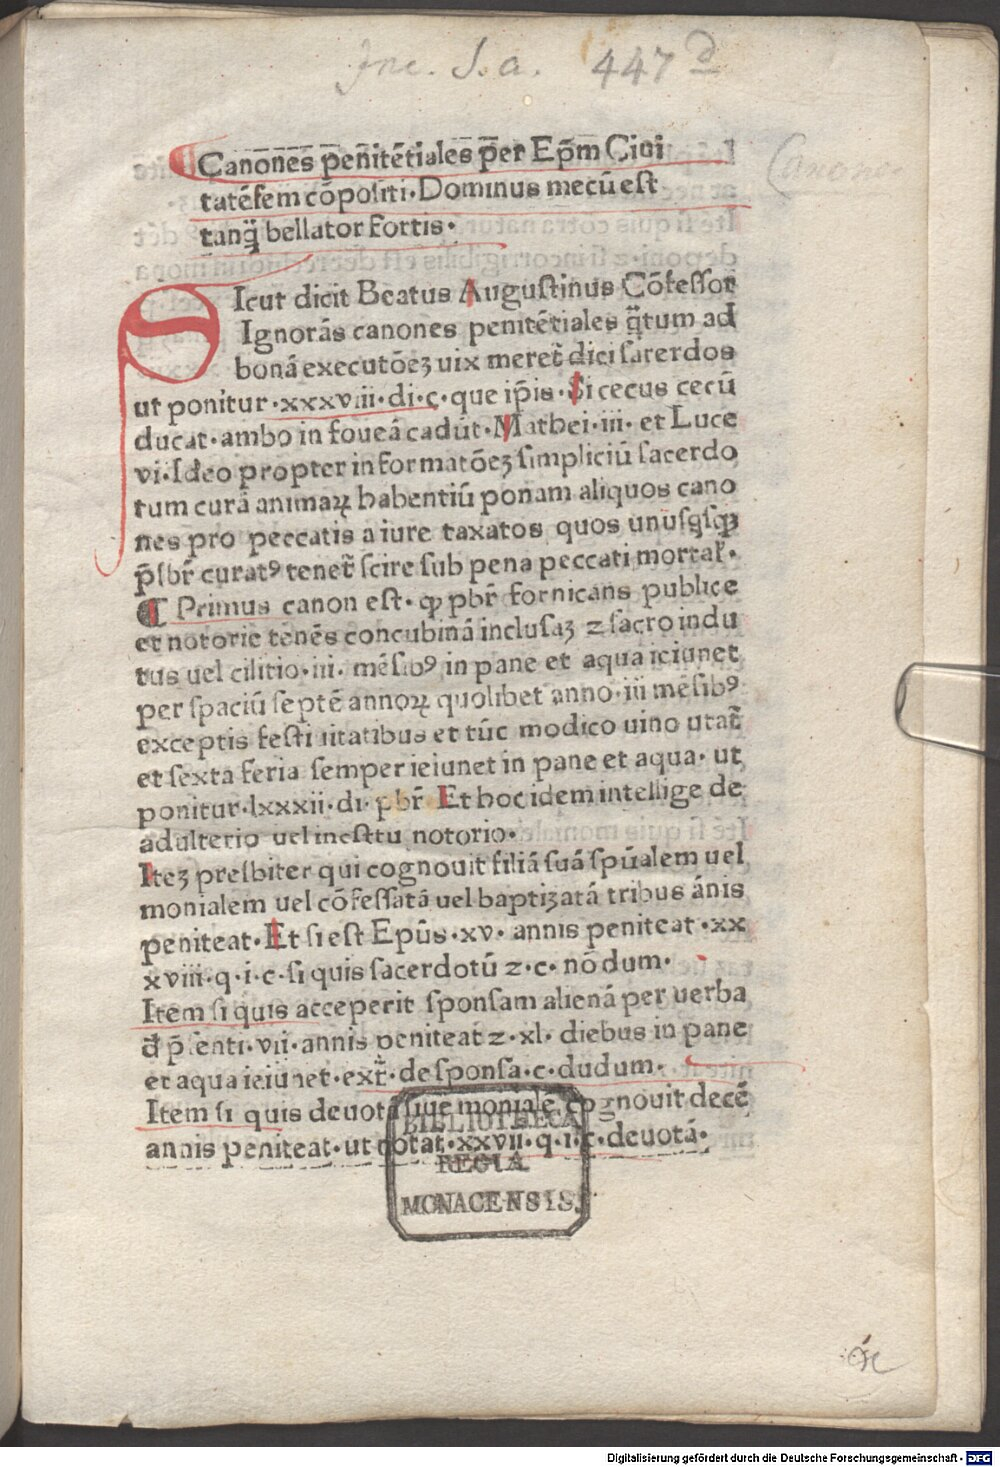 Inc. S. a. 447 d
Canones
Canōnes penitētiales per Ep̄m Ciui
tatēsem cōpositi. Dominus mecū est
tanq̄ bellator fortis.
SIcut dicit Beatus Augustinus Cōfessor
Ignorās canones penitētiales q̄tum ad
bonā executōeꝫ uix meret᷑ dici sacerdos
ut ponitur .xxxviii. di. c. que ip̄is. Si cecus cecū
ducat. ambo in foueā cadūt. Mathei .iii. et Luce
vi. Ideo propter informatōeꝫ simpliciū sacerdo
tum curā animaꝝ habentiū ponam aliquos cano
nes pro peccatis a iure taxatos quos unusqisqꝫ
p̄sbr̄ curatꝰ tenet᷑ scire sub pena peccati mortal̄.
¶ Primus canon est. ꝙ pbr̄ fornicans publice
et notorie tenēs concubinā inclusaꝫ ⁊ sacro indu
tus uel cilitio .iii. mēsibꝰ in pane et aqua ieiunet
per spaciū septē annoꝝ quolibet anno .iii mēsibꝰ
exceptis festiuitatibus et tūc modico uino utat᷑
et sexta feria semper ieiunet in pane et aqua. ut
ponitur .lxxxii. di. pbr̄ Et hoc idem intellige de
adulterio uel incestu notorio.
Iteꝫ presbiter qui cognouit filiā suā sp̄ualem uel
monialem uel cōfessatā uel baptiꝫatā tribus ānis
peniteat. Et si est Epūs .xv. annis peniteat .xx
xviii. q. i. c. si quis sacerdotū ⁊. c. nō dum.
Item si quis acceperit sponsam alienā per uerba
đ p̄senti .vii. annis peniteat ⁊ .xl. diebus in pane
et aqua ieiunet. ext᷑. de sponsa. c. dudum.
Item si quis deuotā siue moniale cognouit decē
annis peniteat. ut notat .xxvii. q. i. c. deuotā.
BIBLIOTHECA
REGIA
MONACENSIS.
Digitalisierung gefördert durch die Deutsche Forschungsgemeinschaft - DFG